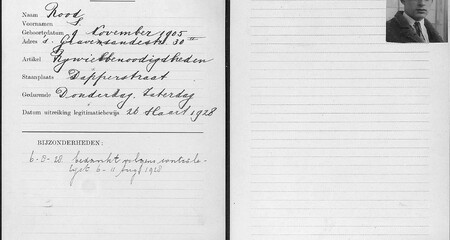 Naam Rood
Voornamen S.
Geboortedatum 9 November 1905
Adres s' Gravesandestr. 30 III
Artikel Rywielbenoodigdheden
Staanplaats Dapperstraat
Gedurende Donderdag, Zaterdag
Datum uitreiking legitimatiebewijs 26 Maart 1928
BIJZONDERHEDEN:
6-8-28. bedankt volgens contrôle-
lijst 6-11 Aug. 1928